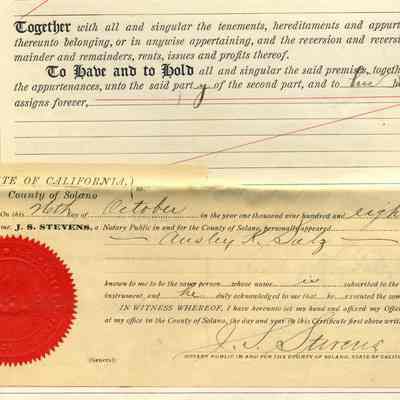 Together with all and singular the tenements, hereditaments and appurt
thereunto belonging, or in anywise appertaining, and the reversion and reversi
mainder and remainders, rents, issues and profits thereof.
To Have and to Hold all and singular the said premises, togeth
the appurtenances, unto the said party of the second part, and to his h
assigns forever,
TE OF CALIFORNIA, } ss.
County of Solano
On this 26th day of October in the year one thousand nine hundred and eigh
me, J. S. STEVENS, a Notary Public in and for the County of Solano, personally appeared
known to me to be the person whose name is subscribed to the
instrument, and he duly acknowledged to me that he executed the same
IN WITNESS WHEREOF, I have hereunto set my hand and affixed my Offic
at my office in the County of Solano, the day and year in this Certificate first above writte
J. S. Stevens
(General) NOTARY PUBLIC IN AND FOR THE COUNTY OF SOLANO, STATE OF CALIF